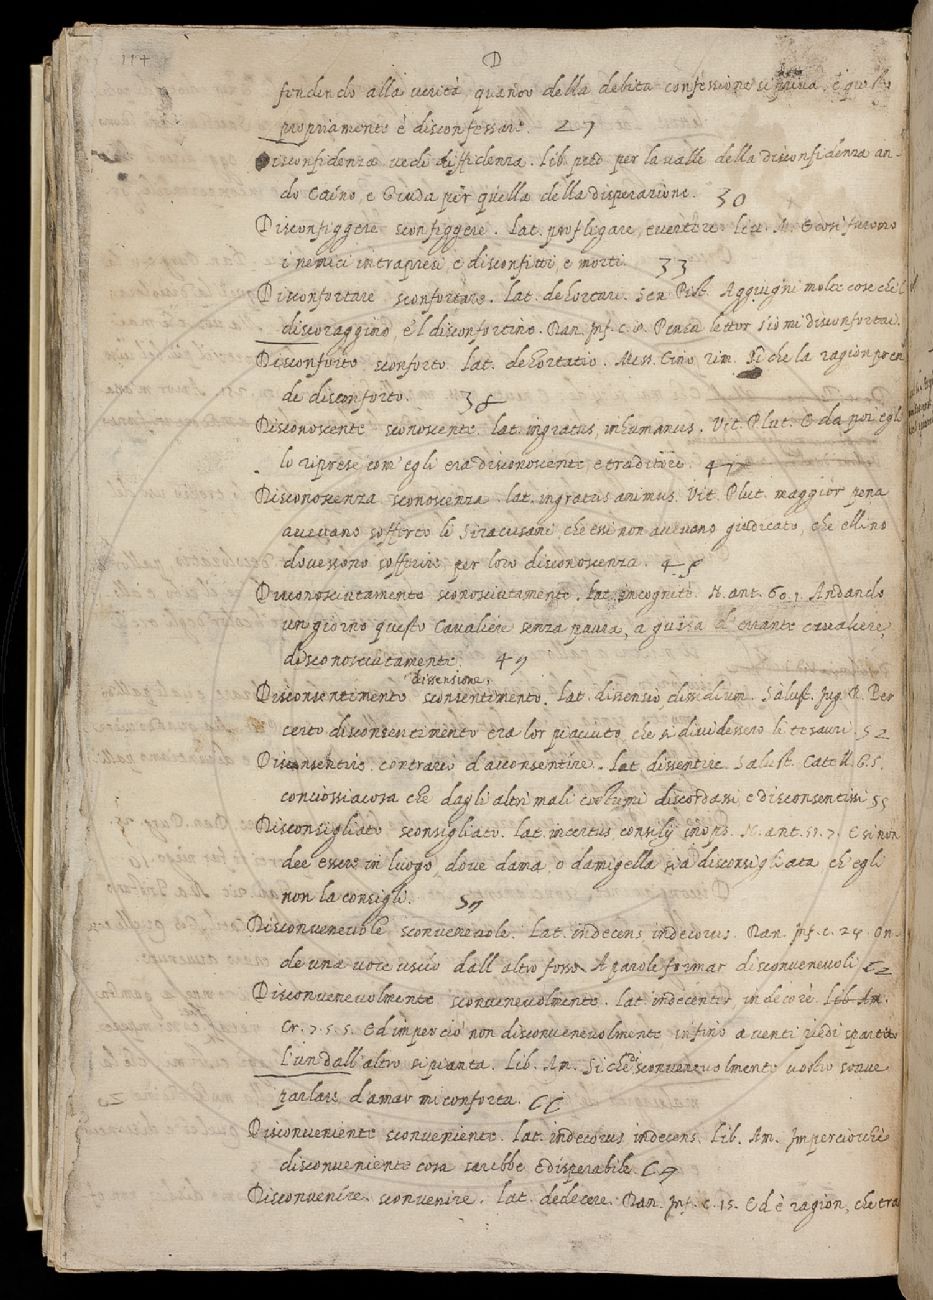 114
D
fondendo alla verità, quando della debita confessione si priva, e questo
propriamente è disconfessare. 29
Disconfidenza vedi diffidenza. Lib. pred per la valle della disconfidenza an-
do Caino, e Giuda per quella della disperazione. 30
Disconfiggere sconfiggere. Lat. profligare, evertere. Liv. M. E così furono
i nemici intrapresi e disconfitti, e morti. 33
Disconfortare sconfortare. Lat. dehortari. Sen Pist. Aggiugni molte cose che'l
discoraggino, e'l disconfortino. Dan. Inf. c. 8. Pensa lettor s'io mi disconfortai.
Disconforto sconforto. Lat. dehortatio. Mess. Cino rim. Sì che la ragion pren
de disconforto. 38
Disconoscente sconoscente. lat. ingratus, inhumanus. Vit. Plut. E da poi egli
lo riprese com' egli era disconoscente, e traditore. 47
Disconoscenza sconoscenza. lat. ingratus animus. Vit. Plut. maggior pena
avevano sofferto li Siracusani, che essi non avevano giudicato, che ellino
dovessono soffrire, per loro disconoscenza. 48
Disconosciutamente sconosciutamente. Lat. incognitò. N. ant. 60.1. Andando
un giorno questo Cavaliere senza paura, a guisa d' errante cavaliere,
disconosciutamente. 49
dissensione,
Disconsentimento sconsentimento. Lat. dissensio, dissidium. Salust. Jug. R. Per
certo disconsentimento era lor piaciuto, che si dividessero li tesauri. 52
Disconsentire contrario d'acconsentire. Lat. dissentire. Salust. Catel. R.
conciossiacosa che dagli altri mali costumi discordassi e disconsentissi 55
Disconsigliato sconsigliato. Lat. incertus consilij inops. N. ant. 57. 7. E si non
dee essere in luogo, dove dama, o damigella sia disconsigliata ch' egli
non la consigli. 59
Disconvenevole sconvenevole. Lat. indecens indecorus. Dan. Inf. c. 24. On-
de una voce uscio dall' altro fosso. A parole formar disconvenevoli 62
Disconvenevolmente sconvenevolmente. Lat. indecenter indecorè. Lib. Am.
Cr. 2. 5. 5. Ed imperciò non disconvenevolmente infino a venti piedi spartito
l'un dall' altro si pianta. Lib. Am. Sì che disconvenevolmente vostro soave
parlare, d'amar mi conforta. 66
Disconveniente sconveniente. Lat. indecorus indecens. Lib. Am. Imperciocchè
disconveniente cosa sarebbe e disperabile. 69
Disconvenire sconvenire. Lat. dedecere. Dan. Inf. c. 15. Ed è ragion, che tra